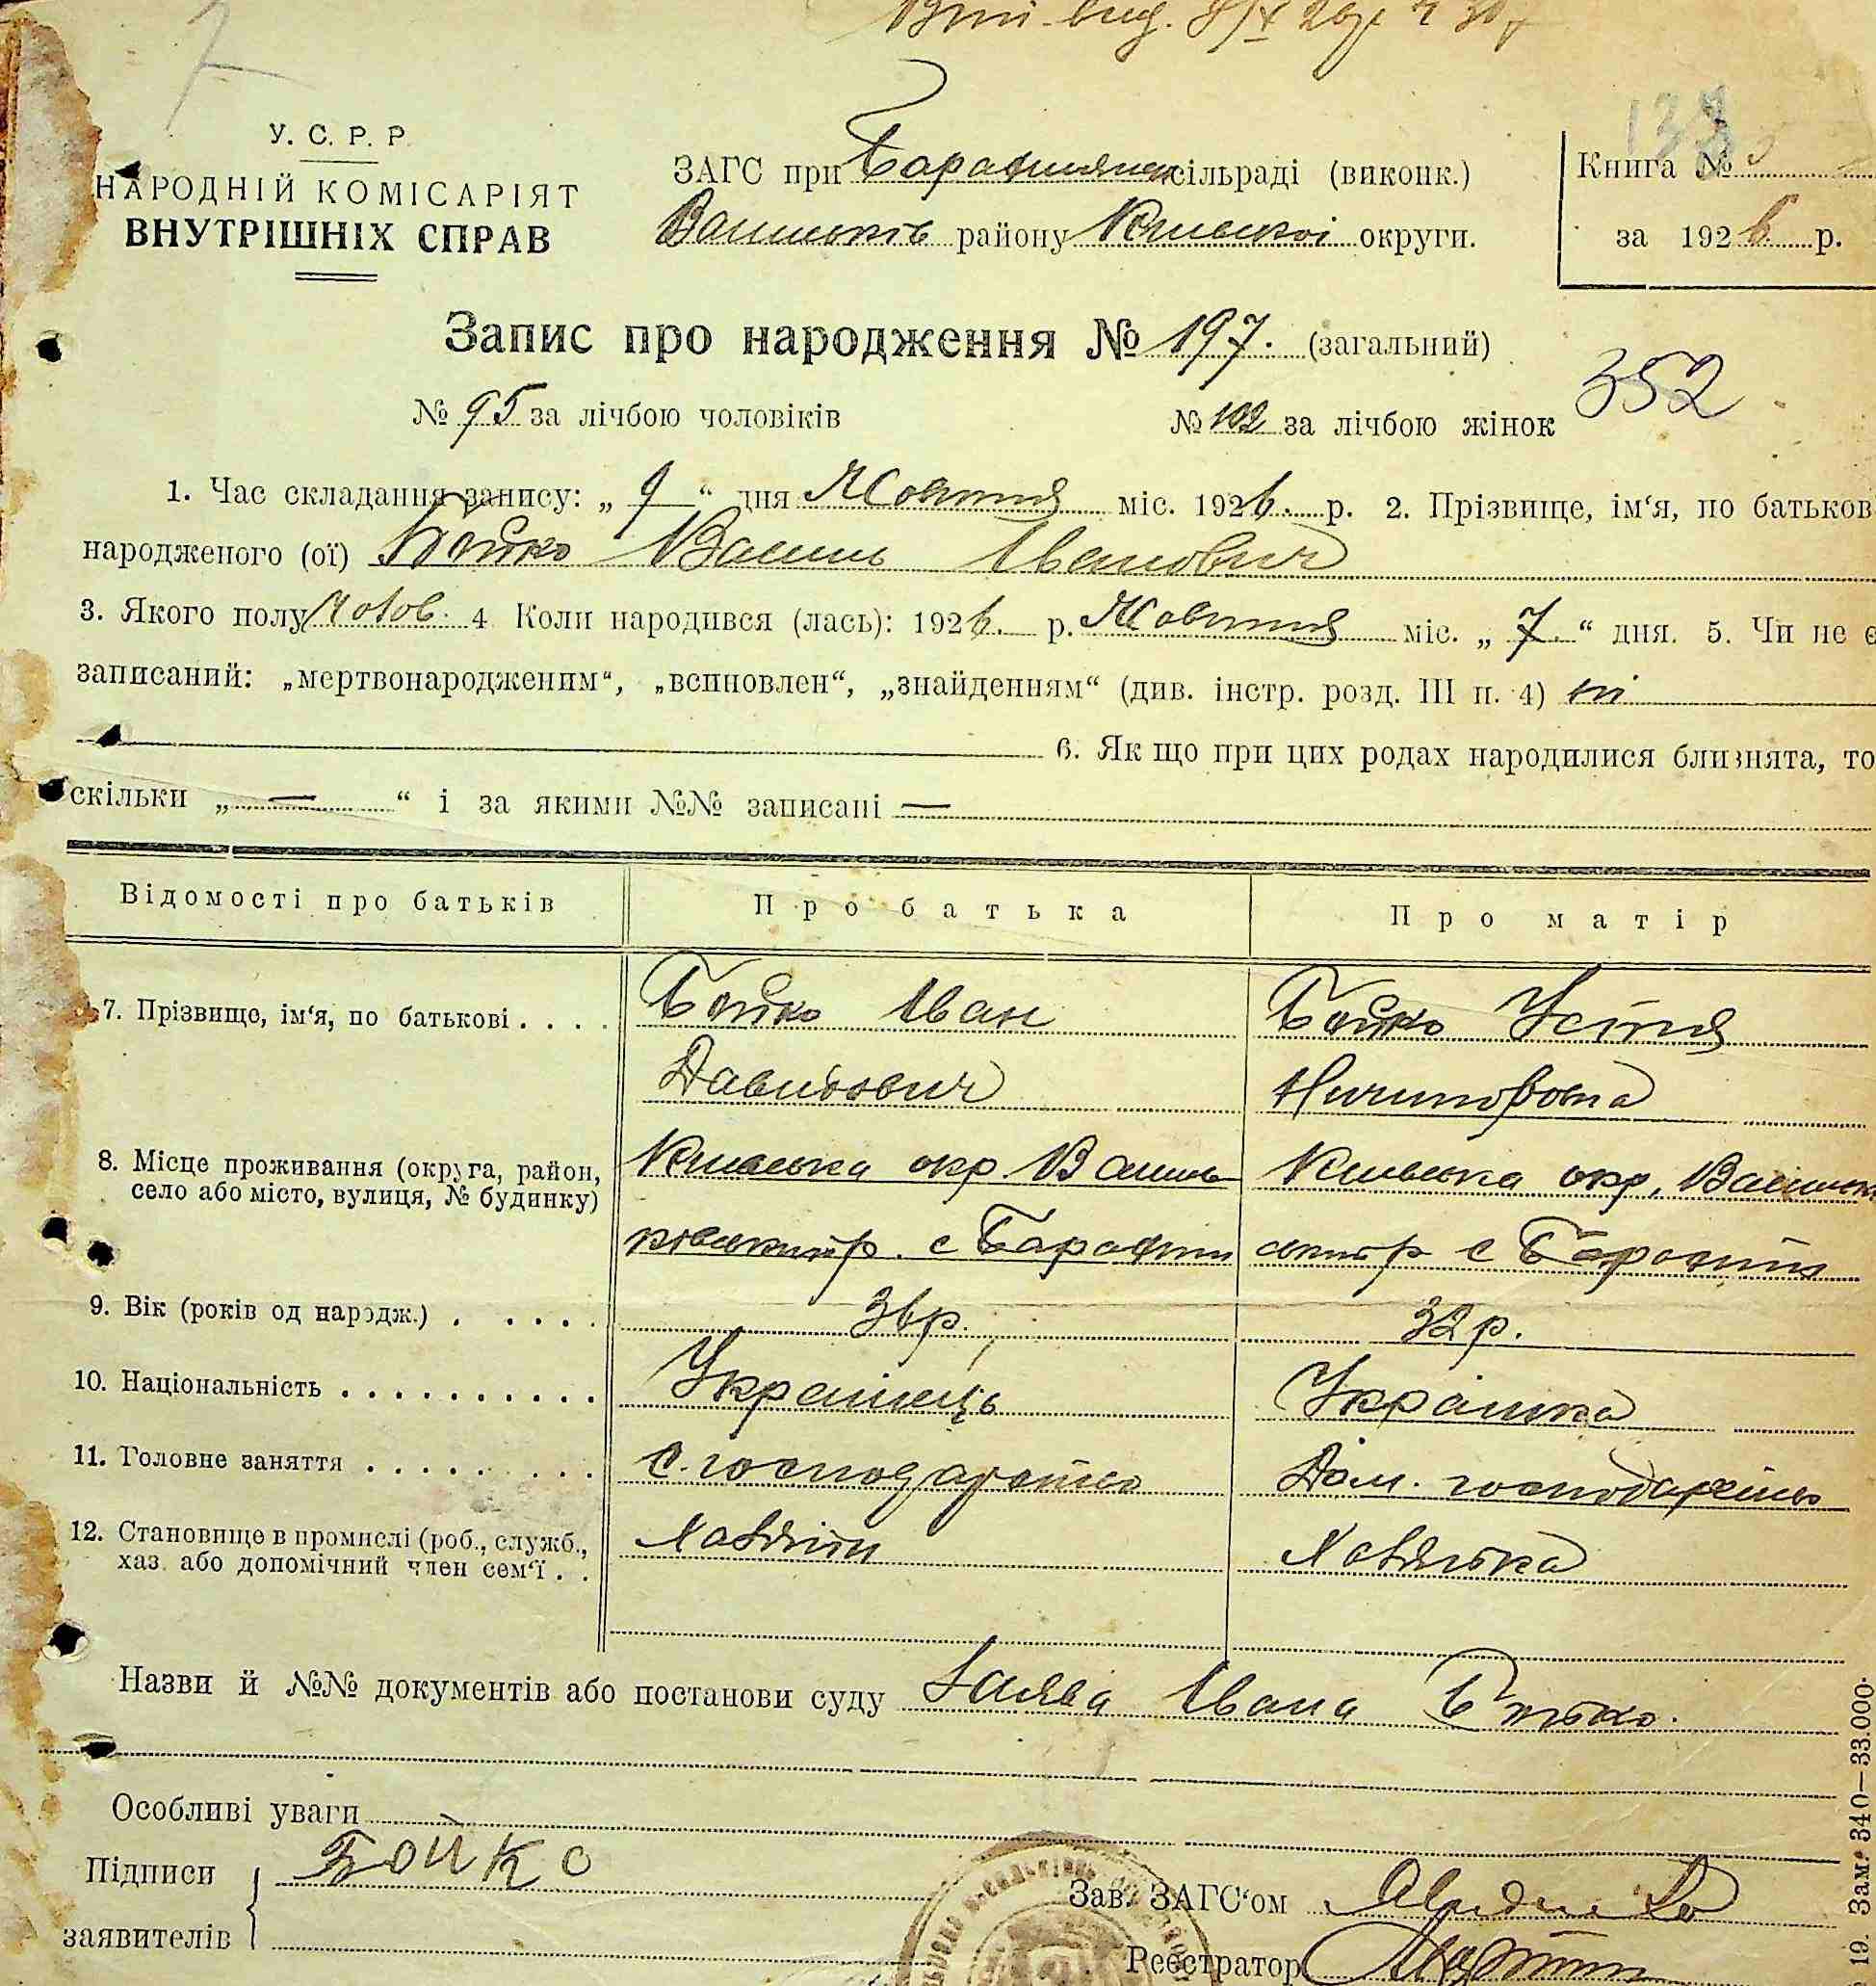 133
У. С. Р. Р.
НАРОДНІЙ КОМІСАРІЯТ
ВНУТРІШНІХ СПРАВ
ЗАГС при сільраді (виконк.)
Васильків району Київської округи.
Книга №
за 1926 р.
Запис про народження № 197. (загальний)
352
№ 95 за лічбою чоловіків № 102 за лічбою жінок
1. Час складання запису: „ 9 “ дня Жовтня міс. 1926. р. 2. Прізвище, ім‘я, по батьков
народженого (ої) Бойко Василь Іванович
3. Якого полу Чолов. 4 Коли народився (лась): 1926. р. Жовтня міс. „ 7. “ дня. 5. Чи не є
записаний: „мертвонародженим“, „всиновлен“, „знайденням“ (див. інстр. розд. III п. 4) ні
6. Як що при цих родах народилися близнята, то
скільки „ — “ і за якими №№ записані —
Відомості про батьків Про батька Про матір
7. Прізвище, ім‘я, по батькові . . . . Бойко Іван Бойко Устія
Давидович Ничипоровна
8. Місце проживання (округа, район, Київська окр. Василь Київська окр. Васильк
село або місто, вулиця, № будинку)
ківський р. с Барахти ський р с Барахти
9. Вік (років од народж.) . . . . . 36 р. 32 р.
10. Національність . . . . . . . . . . Украінець Украінка
11. Головне заняття . . . . . . . . . С. господарство Дом. господарство
12. Становище в промислі (роб., служб., Хазяїн Хазяйка
хаз. або допомічний член сем‘ї . .
Назви й №№ документів або постанови суду Заява Івана Бойко.
Особливі уваги
Підписи Бойко
заявителів
Зав. ЗАГС‘ом
Реєстратор
19. Зам. 340—33.000.